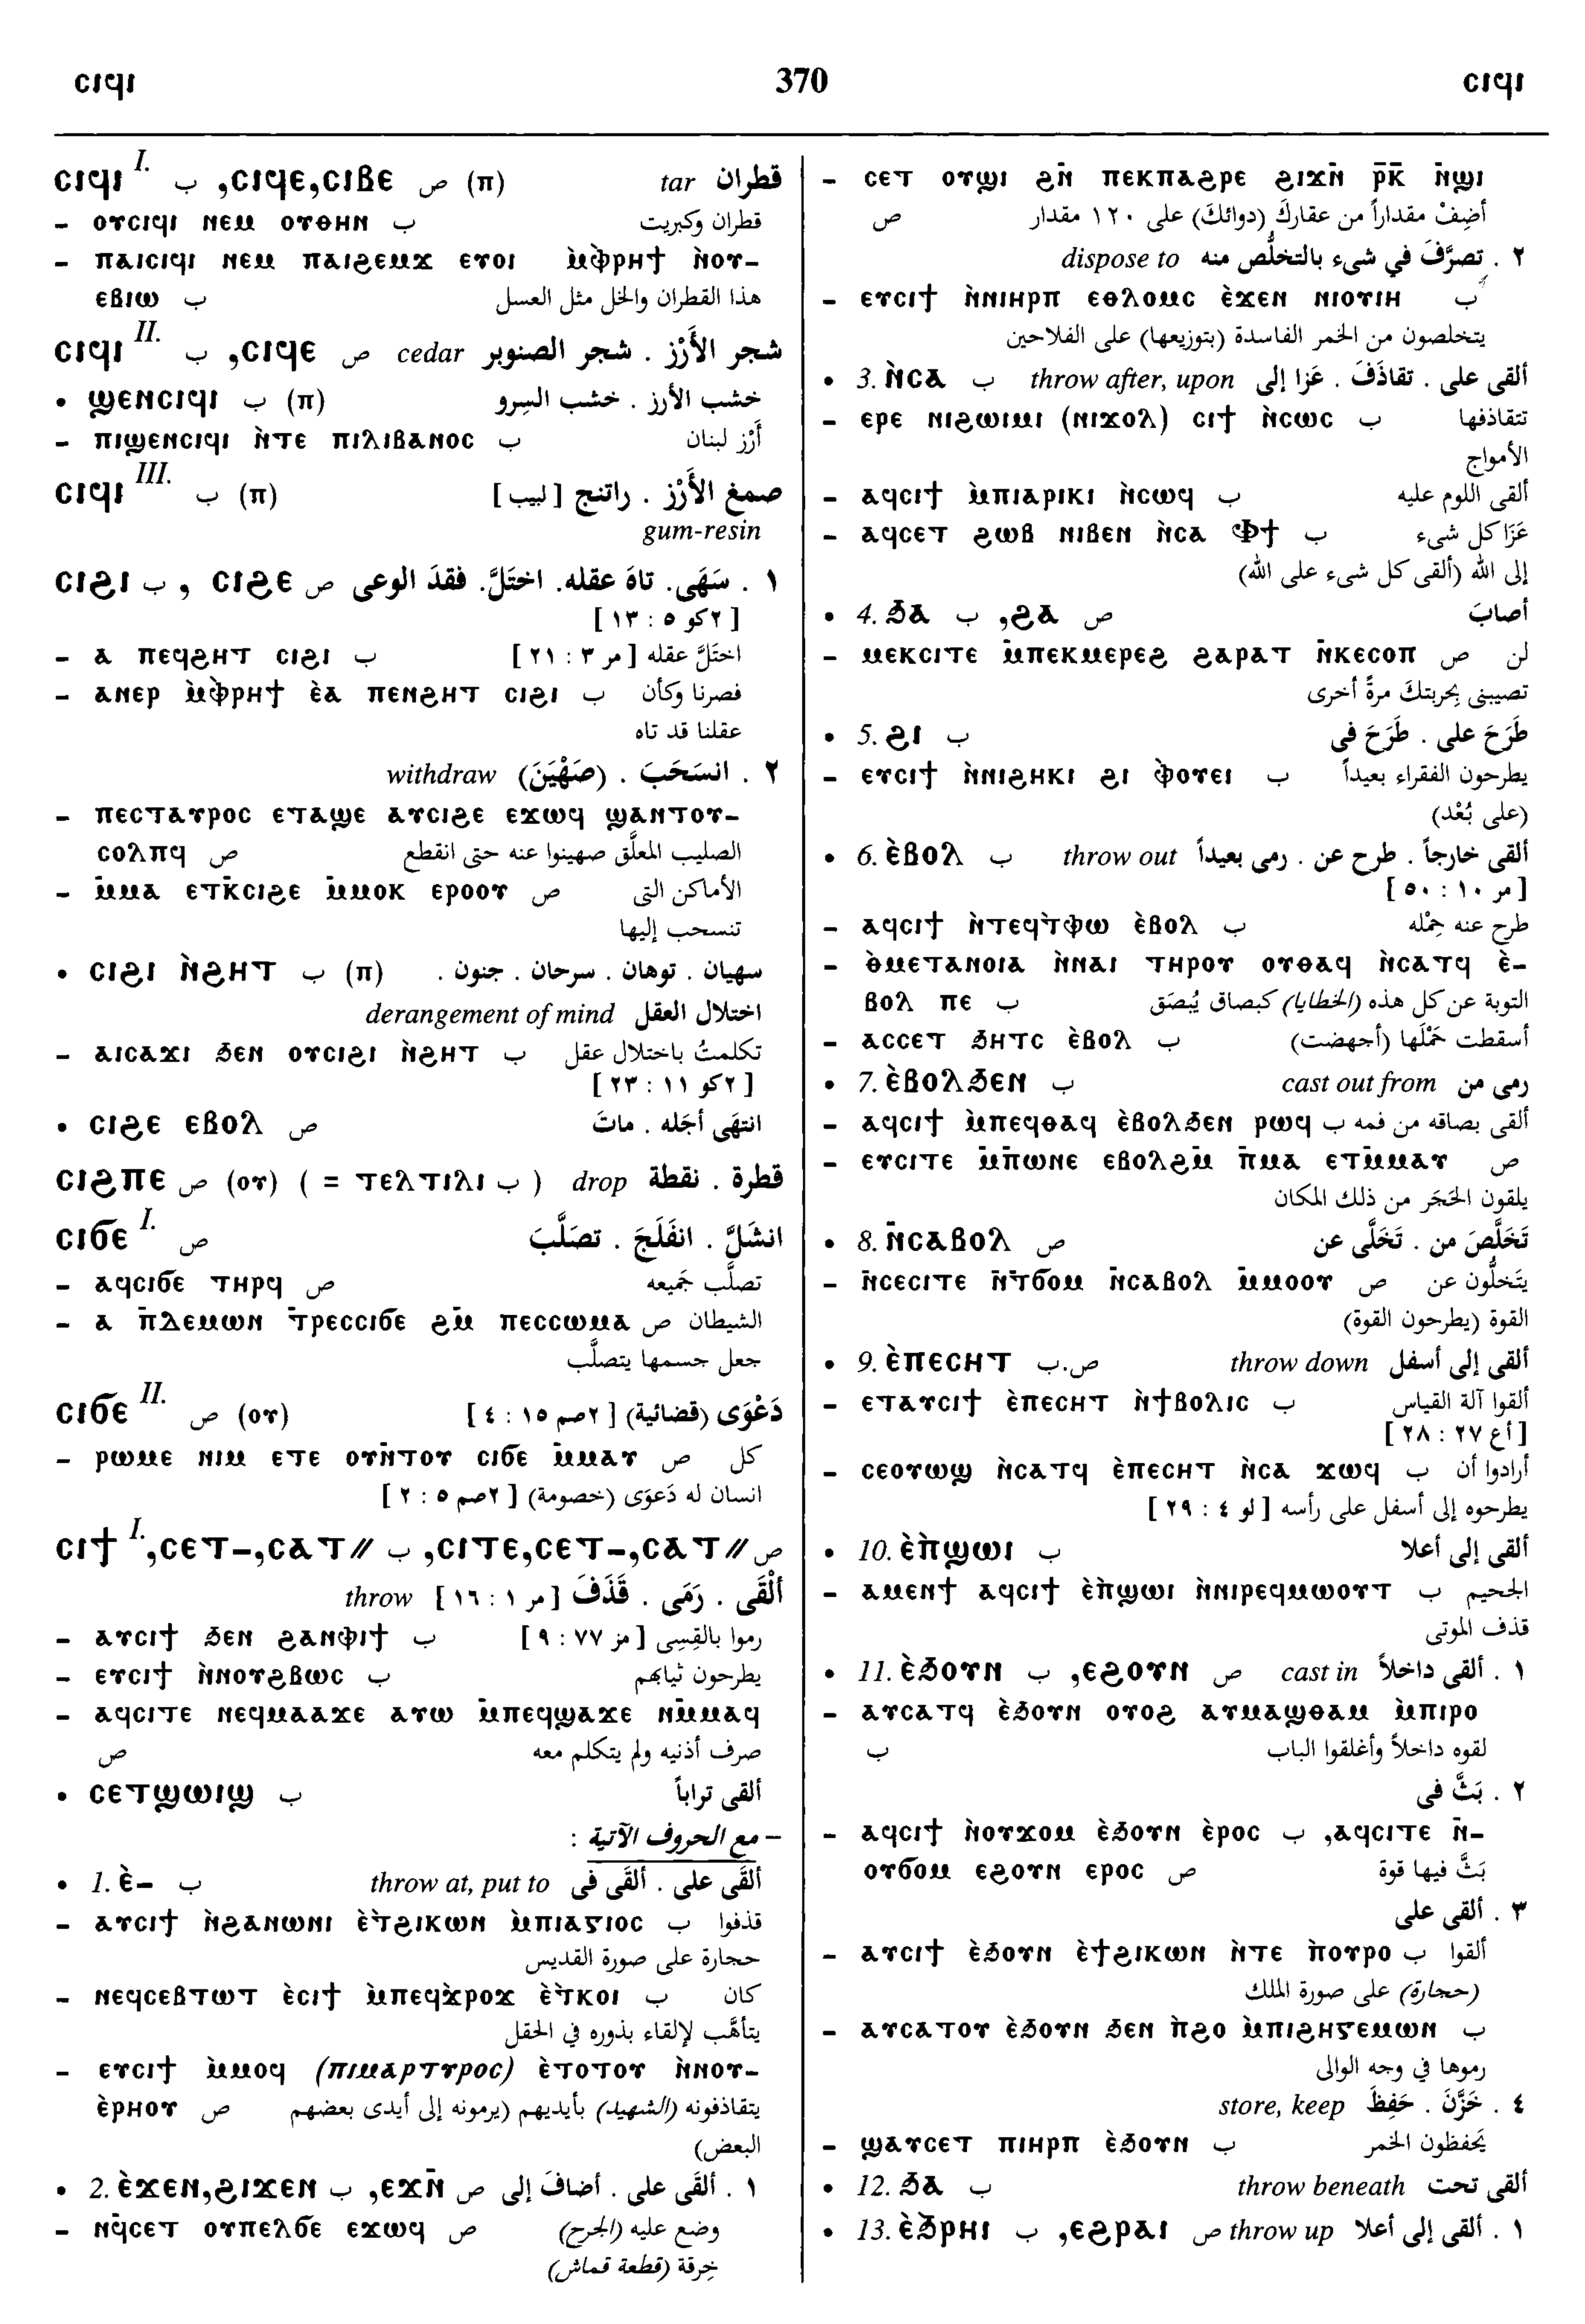 ⲥⲓϥⲓ 370 ⲥⲓϥⲓ
ⲥⲓϥⲓ I. ب ,ⲥⲓϥⲉ,ⲥⲓⲃⲉ ص (ⲡ) tar قطران
– ⲟⲩⲥⲓϥⲓ ⲛⲉⲙ ⲟⲩⲑⲏⲛ ب قطران وكبريت
– ⲡⲁⲓⲥⲓϥⲓ ⲛⲉⲙ ⲡⲁⲓϩⲉⲙϫ ⲉⲧⲟⲓ ⲙ̀ⲫⲣⲏϯ ⲛ̀ⲟⲩ–
ⲉⲃⲓⲱ ب هذا القطران والخل مثل العسل
ⲥⲓϥⲓ II. ب ,ⲥⲓϥⲉ ص cedar شجر الأَرْز . شجر الصنوبر
• ϣⲉⲛⲥⲓϥⲓ ب (ⲡ) خشب الأرز . خشب السرو
– ⲡⲓϣⲉⲛⲥⲓϥⲓ ⲛ̀ⲧⲉ ⲡⲓⲗⲓⲃⲁⲛⲟⲥ ب أَرْز لبنان
ⲥⲓϥⲓ III. ب (ⲡ) صمغ الأَرْز . راتنج [ لبيب ]
gum-resin
ⲥⲓϩⲓ ب , ⲥⲓϩⲉ ص ١ . سَهَى. تاهَ عقله. اختَلَّ. فقدَ الوعى
[ ٢كو ٥ : ١٣ ]
– ⲁ ⲡⲉϥϩⲏⲧ ⲥⲓϩⲓ ب اختَلَّ عقله [ مر ٣ : ٢١ ]
– ⲁⲛⲉⲣ ⲙ̀ⲫⲣⲏϯ ⲉ̀ⲁ ⲡⲉⲛϩⲏⲧ ⲥⲓϩⲓ ب فصرنا وكأن
عقلنا قد تاه
٢ . انسَحَبَ . (صَهْيَنَ) withdraw
– ⲡⲉⲥⲧⲁⲩⲣⲟⲥ ⲉⲧⲁϣⲉ ⲁⲩⲥⲓϩⲉ ⲉϫⲱϥ ϣⲁⲛⲧⲟⲩ–
ⲥⲟⲗⲡϥ ص الصليب المعلَّق صهينوا عنه حتى انقطع
– ⲙ̄ⲙⲁ ⲉⲧⲕ̄ⲥⲓϩⲉ ⲙ̄ⲙⲟⲕ ⲉⲣⲟⲟⲩ ص الأماكن التى
تنسحب إليها
• ⲥⲓϩⲓ ⲛ̀ϩⲏⲧ ب (ⲡ) سهيان . توهان . سرحان . جنون .
derangement of mind اختلال العقل
– ⲁⲓⲥⲁϫⲓ ϧⲉⲛ ⲟⲩⲥⲓϩⲓ ⲛ̀ϩⲏⲧ ب تكلمتُ باختلال عقل
[ ٢كو ١١ : ٢٣ ]
• ⲥⲓϩⲉ ⲉⲃⲟⲗ ص انتهَى أجَله . ماتَ
ⲥⲓϩⲡⲉ ص (ⲟⲩ) ( = ⲧⲉⲗⲧⲓⲗⲓ ب ) drop قطرة . نقطة
ⲥⲓϭⲉ I. ص انشَلَّ . انفَلَجَ . تصَلَّبَ
– ⲁϥⲥⲓϭⲉ ⲧⲏⲣϥ ص تصلَّب جَميعه
– ⲁ ⲡ̄ⲇⲉⲙⲱⲛ ⲧ̄ⲣⲉⲥⲥⲓϭⲉ ϩⲙ̄ ⲡⲉⲥⲥⲱⲙⲁ ص الشيطان
جعل جسمها يتصلَّب
ⲥⲓϭⲉ II. ص (ⲟⲩ) دَعْوَى (قضائية) [ ٢صم ١٥ : ٤ ]
– ⲣⲱⲙⲉ ⲛⲓⲙ ⲉⲧⲉ ⲟⲩⲛ̄ⲧⲟⲩ ⲥⲓϭⲉ ⲙ̄ⲙⲁⲩ ص كل
انسان له دَعوَى (خصومة) [ ٢صم ٥ : ٢ ]
ⲥⲓϯ I.,ⲥⲉⲧ–,ⲥⲁⲧ// ب ,ⲥⲓⲧⲉ,ⲥⲉⲧ–,ⲥⲁⲧ// ص
throw أَلْقَى . رَمَى . قَذَفَ [ مر ١ : ١٦ ]
– ⲁⲩⲥⲓϯ ϧⲉⲛ ϩⲁⲛⲫⲓϯ ب رموا بالقِسِى [ مز ٧٧ : ٩ ]
– ⲉⲩⲥⲓϯ ⲛ̀ⲛⲟⲩϩⲃⲱⲥ ب يطرحون ثيابَهم
– ⲁϥⲥⲓⲧⲉ ⲛⲉϥⲙⲁⲁϫⲉ ⲁⲩⲱ ⲙ̄ⲡⲉϥϣⲁϫⲉ ⲛⲙ̄ⲙⲁϥ
ص صرف أذنيه ولم يتكلم معه
• ⲥⲉⲧϣⲱⲓϣ ب ألقى تراباً
– مع الحروف الآتية :
• 1. ⲉ̀– ب throw at, put to ألقَى على . ألقَى فى
– ⲁⲩⲥⲓϯ ⲛ̀ϩⲁⲛⲱⲛⲓ ⲉ̀ⲧ̀ϩⲓⲕⲱⲛ ⲙ̀ⲡⲓⲁⲅⲓⲟⲥ ب قذفوا
حجارة على صورة القديس
– ⲛⲉϥⲥⲉⲃⲧⲱⲧ ⲉ̀ⲥⲓϯ ⲙ̀ⲡⲉϥϫ̀ⲣⲟϫ ⲉ̀ⲧ̀ⲕⲟⲓ ب كان
يتأهَّب لإلقاء بذوره في الحقل
– ⲉⲩⲥⲓϯ ⲙ̀ⲙⲟϥ (ⲡⲓⲙⲁⲣⲧⲩⲣⲟⲥ) ⲉ̀ⲧⲟⲧⲟⲩ ⲛ̀ⲛⲟⲩ–
ⲉ̀ⲣⲏⲟⲩ ص يتقاذفونه (الشهيد) بأيديهم (يرمونه إلى أيدى بعضهم
البعض)
• 2. ⲉ̀ϫⲉⲛ,ϩⲓϫⲉⲛ ب ,ⲉϫⲛ̄ ص ١ . ألقَى على . أضافَ إلى
– ⲛϥ̄ⲥⲉⲧ ⲟⲩⲡⲉⲗϭⲉ ⲉϫⲱϥ ص وضع عليه (الجرح)
خِرقة (قطعة قماش)
– ⲥⲉⲧ ⲟⲩϣⲓ ϩⲛ̄ ⲡⲉⲕⲡⲁϩⲣⲉ ϩⲓϫⲛ̄ ⲣ̄ⲕ̄ ⲛ̄ϣⲓ
ص أضِفْ مقداراً من عقاركَ (دوائكَ) على ١٢٠ مقدار
dispose to ٢ . تصرَّفَ في شىء بالتخلُّص منه
– ⲉⲩⲥⲓϯ ⲛ̀ⲛⲓⲏⲣⲡ ⲉⲑⲗⲟⲙⲥ ⲉ̀ϫⲉⲛ ⲛⲓⲟⲩⲓⲏ ب
يتخلصون من الخمر الفاسدة (بتوزيعها) على الفلاحين
• 3. ⲛ̀ⲥⲁ ب throw after, upon ألقى على . تقاذَفَ . عَزا إلى
– ⲉⲣⲉ ⲛⲓϩⲱⲓⲙⲓ (ⲛⲓϫⲟⲗ) ⲥⲓϯ ⲛ̀ⲥⲱⲥ ب تتقاذفها
الأمواج
– ⲁϥⲥⲓϯ ⲙ̀ⲡⲓⲁⲣⲓⲕⲓ ⲛ̀ⲥⲱϥ ب ألقى اللوم عليه
– ⲁϥⲥⲉⲧ ϩⲱⲃ ⲛⲓⲃⲉⲛ ⲛ̀ⲥⲁ Ⲫϯ ب عَزَا كل شىء
إلى الله (ألقى كل شىء على الله)
• 4. ϧⲁ ب ,ϩⲁ ص أصابَ
– ⲙⲉⲕⲥⲓⲧⲉ ⲙ̄ⲡⲉⲕⲙⲉⲣⲉϩ ϩⲁⲣⲁⲧ ⲛ̄ⲕⲉⲥⲟⲡ ص لن
تصيبنى بِحربتكَ مرةً أخرى
• 5. ϩⲓ ب طَرَحَ على . طَرَحَ فى
– ⲉⲩⲥⲓϯ ⲛ̀ⲛⲓϩⲏⲕⲓ ϩⲓ ⲫⲟⲩⲉⲓ ب يطرحون الفقراء بعيداً
(على بُعْد)
• 6. ⲉ̀ⲃⲟⲗ ب throw out ألقى خارجاً . طرح عن . رمى بعيداً
[ مر ١٠ : ٥٠ ]
– ⲁϥⲥⲓϯ ⲛ̀ⲧⲉϥⲧ̀ⲫⲱ ⲉ̀ⲃⲟⲗ ب طرح عنه حِمْله
– ⲑⲙⲉⲧⲁⲛⲟⲓⲁ ⲛ̀ⲛⲁⲓ ⲧⲏⲣⲟⲩ ⲟⲩⲑⲁϥ ⲛ̀ⲥⲁⲧϥ ⲉ̀–
ⲃⲟⲗ ⲡⲉ ب التوبة عن كل هذه (الخطايا) كبصاق يُبصَق
– ⲁⲥⲥⲉⲧ ϧⲏⲧⲥ ⲉ̀ⲃⲟⲗ ب أسقطت حَمْلَها (أجهضت)
• 7. ⲉ̀ⲃⲟⲗϧⲉⲛ ب cast out from رمى من
– ⲁϥⲥⲓϯ ⲙ̀ⲡⲉϥⲑⲁϥ ⲉ̀ⲃⲟⲗϧⲉⲛ ⲣⲱϥ ب ألقى بصاقه من فمه
– ⲉⲩⲥⲓⲧⲉ ⲙ̄ⲡⲱⲛⲉ ⲉⲃⲟⲗϩⲙ̄ ⲡⲙⲁ ⲉⲧⲙ̄ⲙⲁⲩ ص
يلقون الحَجَر من ذلك المكان
• 8. ⲛ̄ⲥⲁⲃⲟⲗ ص تَخلَّصَ من . تَخَلَّى عن
– ⲛ̄ⲥⲉⲥⲓⲧⲉ ⲛ̄ⲧ̄ϭⲟⲙ ⲛ̄ⲥⲁⲃⲟⲗ ⲙ̄ⲙⲟⲟⲩ ص يتَخلُّون عن
القوة (يطرحون القوة)
• 9. ⲉ̀ⲡⲉⲥⲏⲧ ص.ب throw down ألقى إلى أسفل
– ⲉⲧⲁⲩⲥⲓϯ ⲉ̀ⲡⲉⲥⲏⲧ ⲛ̀ϯⲃⲟⲗⲓⲥ ب ألقوا آلة القياس
[ أع ٢٧ : ٢٨ ]
– ⲥⲉⲟⲩⲱϣ ⲛ̀ⲥⲁⲧϥ ⲉ̀ⲡⲉⲥⲏⲧ ⲛ̀ⲥⲁ ϫⲱϥ ب أرادوا أن
يطرحوه إلى أسفل على رأسه [ لو ٤ : ٢٩ ]
• 10. ⲉ̀ⲡ̀ϣⲱⲓ ب ألقى إلى أعلا
– ⲁⲙⲉⲛϯ ⲁϥⲥⲓϯ ⲉ̀ⲡ̀ϣⲱⲓ ⲛ̀ⲛⲓⲣⲉϥⲙⲱⲟⲩⲧ ب الجحيم
قذف الموتى
• 11. ⲉ̀ϧⲟⲩⲛ ب ,ⲉϩⲟⲩⲛ ص cast in ١ . ألقى داخلاً
– ⲁⲩⲥⲁⲧϥ ⲉ̀ϧⲟⲩⲛ ⲟⲩⲟϩ ⲁⲩⲙⲁϣⲑⲁⲙ ⲙ̀ⲡⲓⲣⲟ
ب لقوه داخلاً وأغلقوا الباب
٢ . بَثَّ فى
– ⲁϥⲥⲓϯ ⲛ̀ⲟⲩϫⲟⲙ ⲉ̀ϧⲟⲩⲛ ⲉ̀ⲣⲟⲥ ب ,ⲁϥⲥⲓⲧⲉ ⲛ̄–
ⲟⲩϭⲟⲙ ⲉϩⲟⲩⲛ ⲉⲣⲟⲥ ص بَثَّ فيها قوة
٣ . ألقى على
– ⲁⲩⲥⲓϯ ⲉ̀ϧⲟⲩⲛ ⲉ̀ϯϩⲓⲕⲱⲛ ⲛ̀ⲧⲉ ⲡ̀ⲟⲩⲣⲟ ب ألقوا
(حجارة) على صورة الملك
– ⲁⲩⲥⲁⲧⲟⲩ ⲉ̀ϧⲟⲩⲛ ϧⲉⲛ ⲡ̀ϩⲟ ⲙ̀ⲡⲓϩⲏⲅⲉⲙⲱⲛ ب
رموها في وجه الوالى
store, keep ٤ . خَزَّنَ . حَفِظَ
– ϣⲁⲩⲥⲉⲧ ⲡⲓⲏⲣⲡ ⲉ̀ϧⲟⲩⲛ ب يَحفظون الخمر
• 12. ϧⲁ ب throw beneath ألقى تحت
• 13. ⲉ̀ϧⲣⲏⲓ ب ,ⲉϩⲣⲁⲓ ص throw up ١ . ألقى إلى أعلا